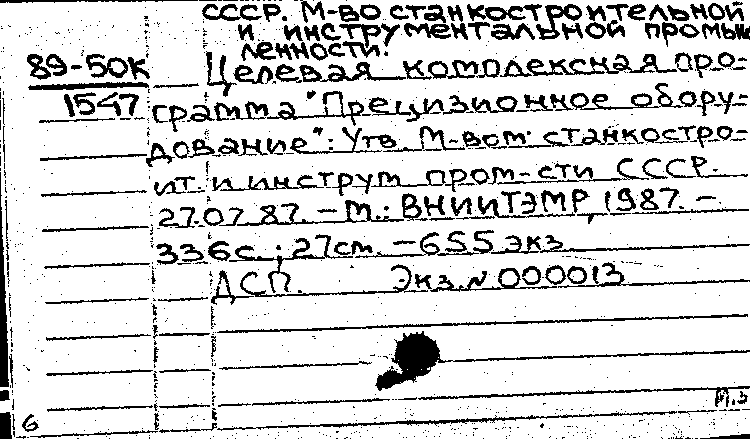 СССР. М-во станкостроительной
и инструментальной промыш
ленности.
89-50К Целевая комплексная про-
1547 грамма "Прецизионное обору-
дование": Утв. М-вом станкостро-
ит. и инструм пром-сти СССР.
27.07.87. – М.: ВНИИТЭМР, 1987. –
336с.; 27см. – 655 экз
ДСП. Экз. № 000013
М.З
6